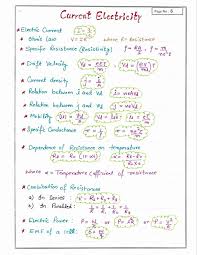 Page No. 6
Current Electricity
* Electric Current I = q/t
* Ohm's law V = IR where R = Resistance
* Specific Resistance (Resistivity) ρ = RA/l , ρ = m/ne²τ
* Drift Velocity
* Current density j = I/A
* Relation between I and Vd I = neAVd
* Relation between j and Vd j = neVd
* Mobility
* Specific Conductance
* Dependence of Resistance on temperature
where α = Temperature Coefficient of resistance
* Combination of Resistances
a) In Series : R = R₁ + R₂ + R₃
b) In Parallel : 1/R = 1/R₁ + 1/R₂ + 1/R₃
* Electric Power : P = VI or P = I²R or P = V²/R
* E.M.F of a Cell :